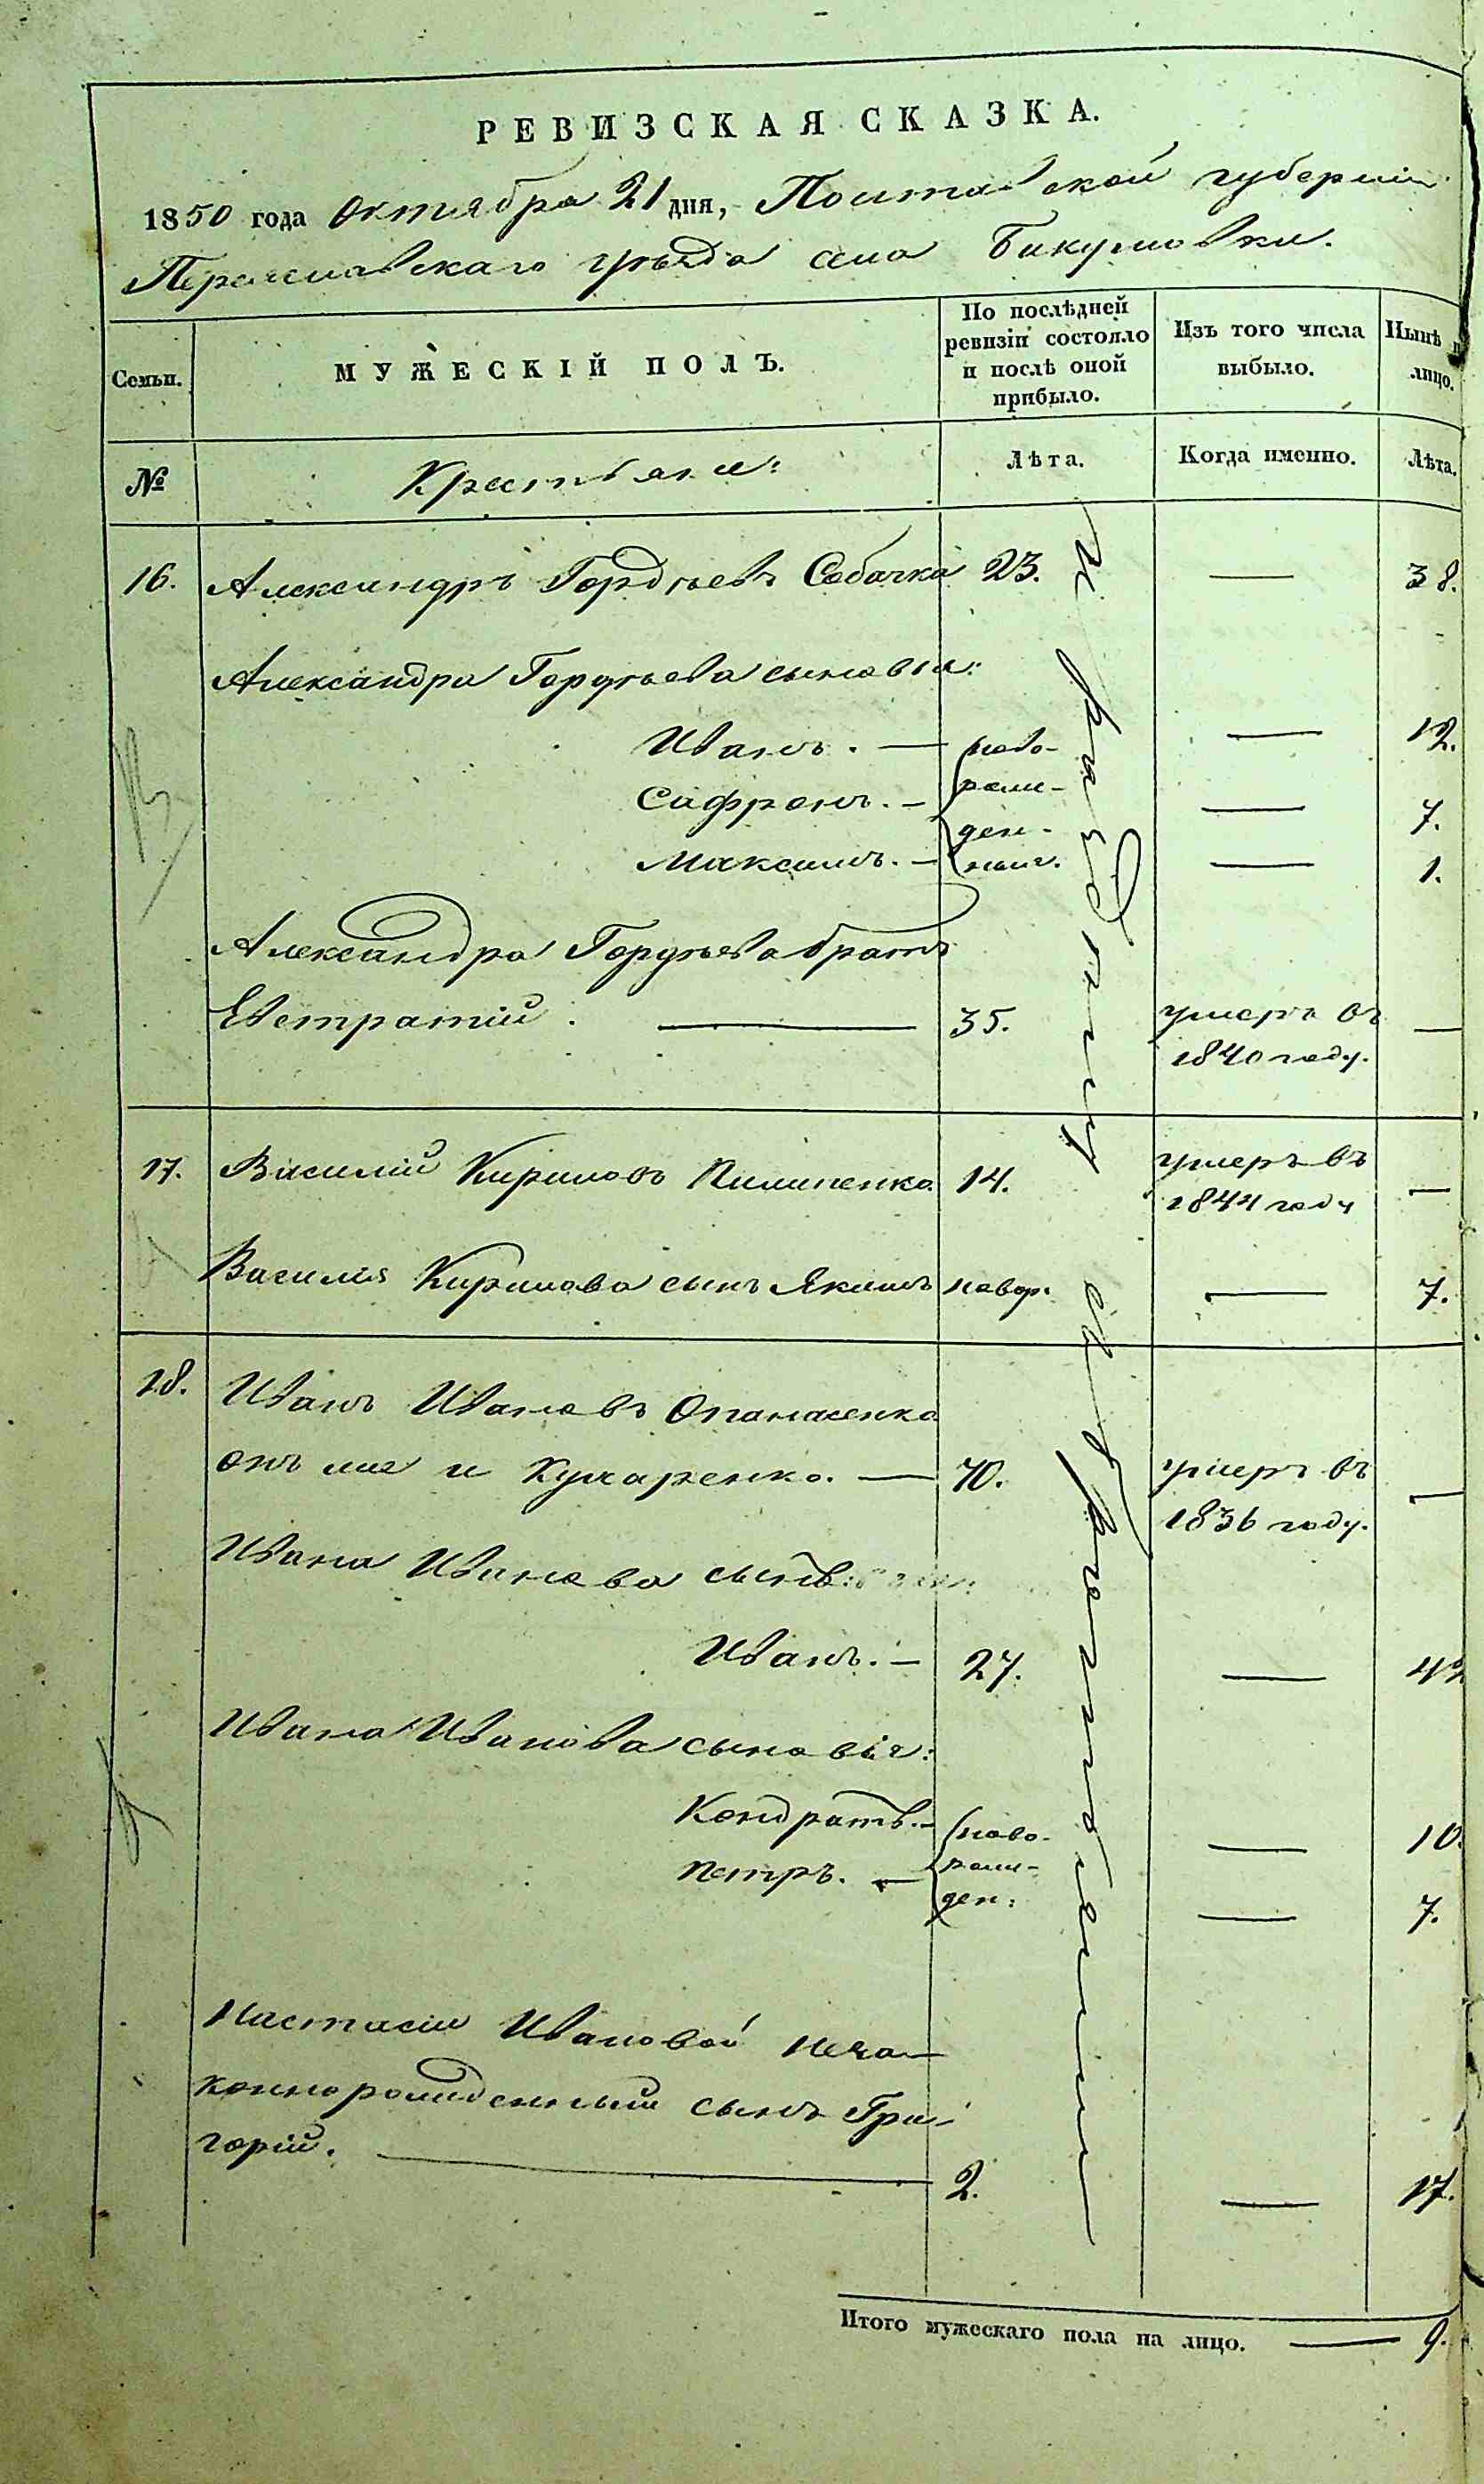 РЕВИЗСКАЯ СКАЗКА.
1850 года Октября 21 дня, Полтавской губерніи
Переяславскаго уѣзда села Бикумовки.
Семьи.
МУЖЕСКІЙ ПОЛЪ.
По послѣдней ревизіи состояло и послѣ оной прибыло.
Изъ того числа выбыло.
Нынѣ на лицо.
№
Крестьяне:
Лѣта.
Когда именно.
Лѣта.
16. Александръ Гордѣевъ Собачка 23. — 38.
Александра Гордѣева сыновья:
Иванъ. — ново- — 12.
Сафронъ. — рож- — 7.
ден-
Максимъ. — ные. — 1.
Александра Гордѣева братъ
Евстратій. — 35. умеръ въ —
1840 году.
17. Василій Кириловъ Пилипенко 14. умеръ въ —
1844 году
Василія Кирилова сынъ Якимъ новор. — 7.
18. Иванъ Ивановъ Опанасенко
онъ же и Кухаренко. — 70. умеръ въ —
1836 году.
Ивана Иванова сынъ:
Иванъ. — 27. — 42
Ивана Иванова сыновья:
Кондратъ. — ново- — 10.
рож-
Петръ. — ден: — 7.
Настасіи Ивановой неза-
коннорожденный сынъ Гри-
горій. — 2. — 17.
Итого мужескаго пола на лицо. — 9.